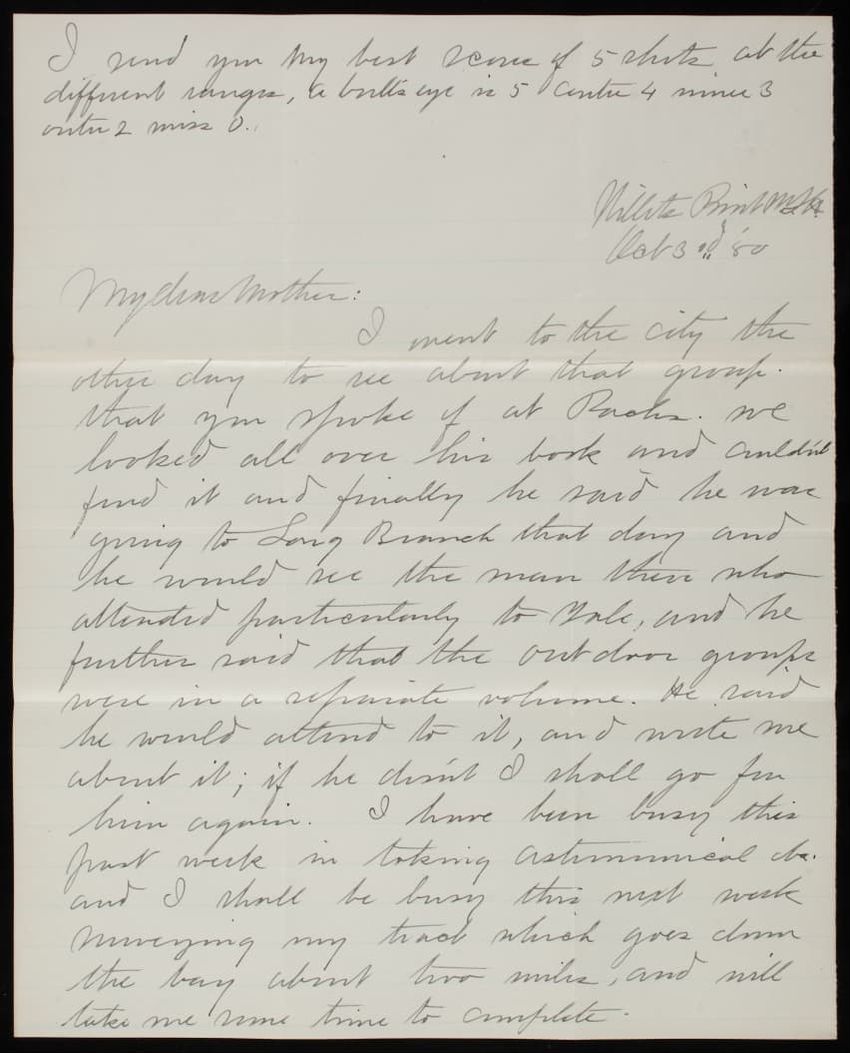 I send you my best scores of 5 shots at the
different ranges, a bulls eye is 5 centre 4 inner 3
outer 2 miss 0.
Willets Point N.Y.H.
Oct 3rd '80
My dear Mother:
I went to the city the
other day to see about that group.
that you spoke of at Pachs. we
looked all over his book and couldn't
find it and finally he said he was
going to Long Branch that day and
he would see the man there who
attended particularly to Yale, and he
further said that the out door groups
were in a separate volume. He said
he would attend to it, and write me
about it; if he dosn't I shall go for
him again. I have been busy this
past week in taking astronomical obs.
and I shall be busy this next week
surveying my tract which goes down
the bay about two miles, and will
take me some time to complete.